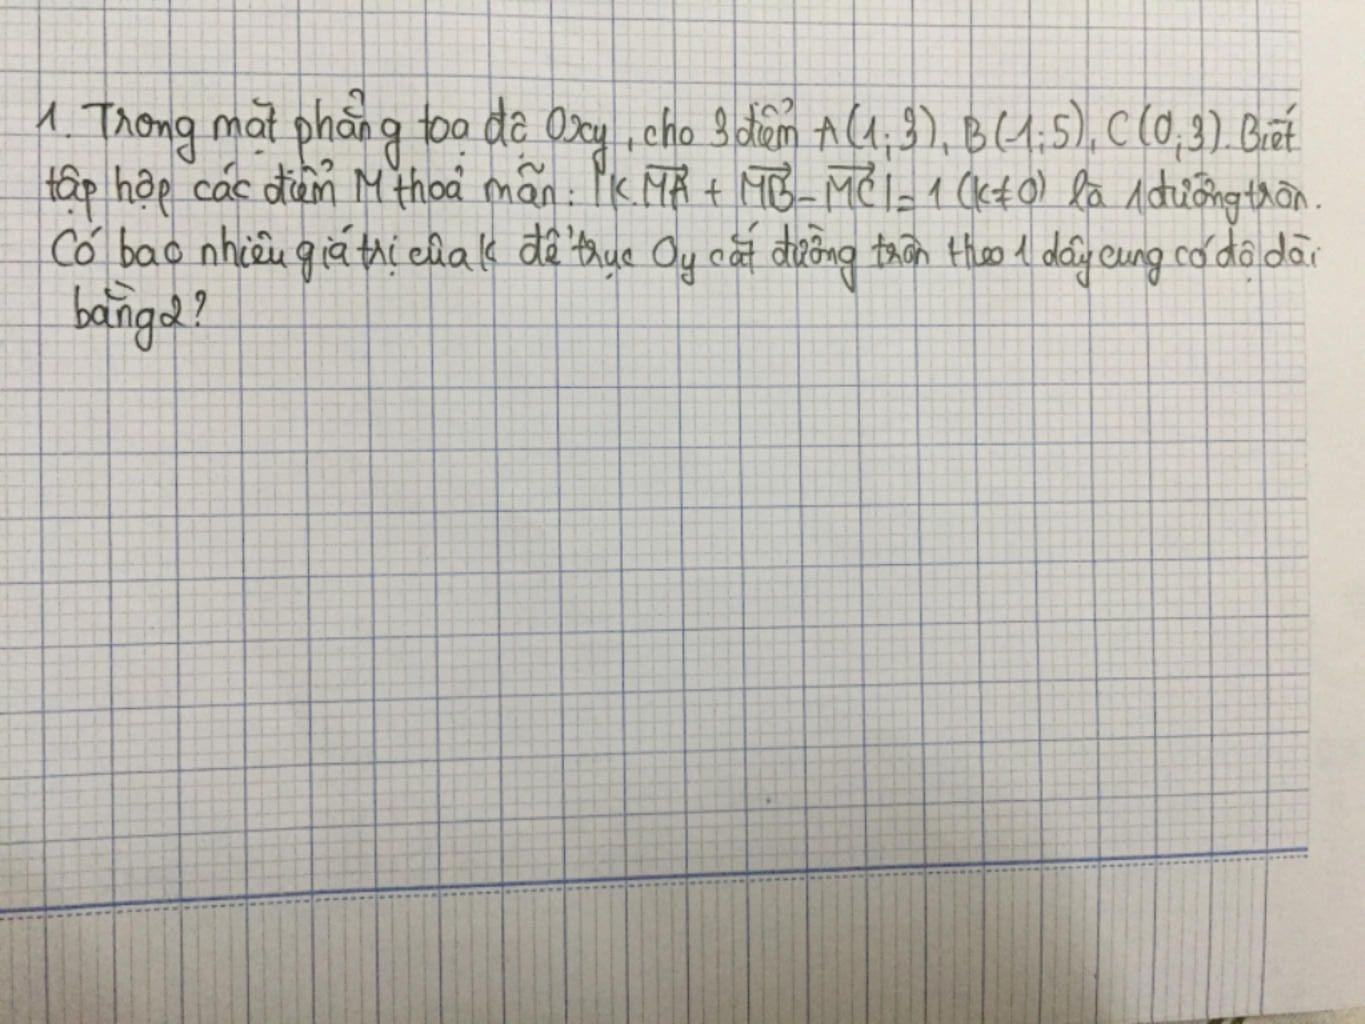 1. Trong mặt phẳng toạ độ Oxy, cho 3 điểm A(1;3), B(1;5), C(0;3). Biết
tập hợp các điểm M thoả mãn: |k.MA + MB - MC| = 1 (k≠0) là 1 đường tròn.
Có bao nhiêu giá trị của k để trục Oy cắt đường tròn theo 1 dây cung có độ dài
bằng 2?